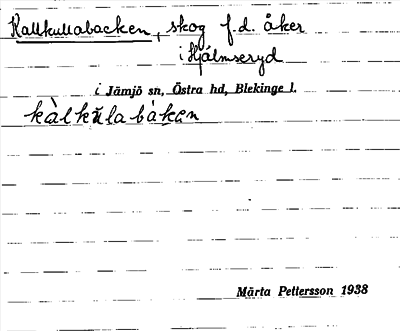 Kallkullabacken, skog f.d. åker
i Hjälmseryd
i Jämjö sn, Östra hd, Blekinge l.
kàlkŭlabàkęn
Märta Pettersson 1938